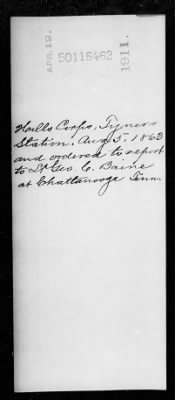 APR. 12.
50115462
1911.
Hills Corps, Tyners
Station. Aug 5. 1863
and ordered to report
to Lt Geo C. Baine
at Chattanooga Tenn.